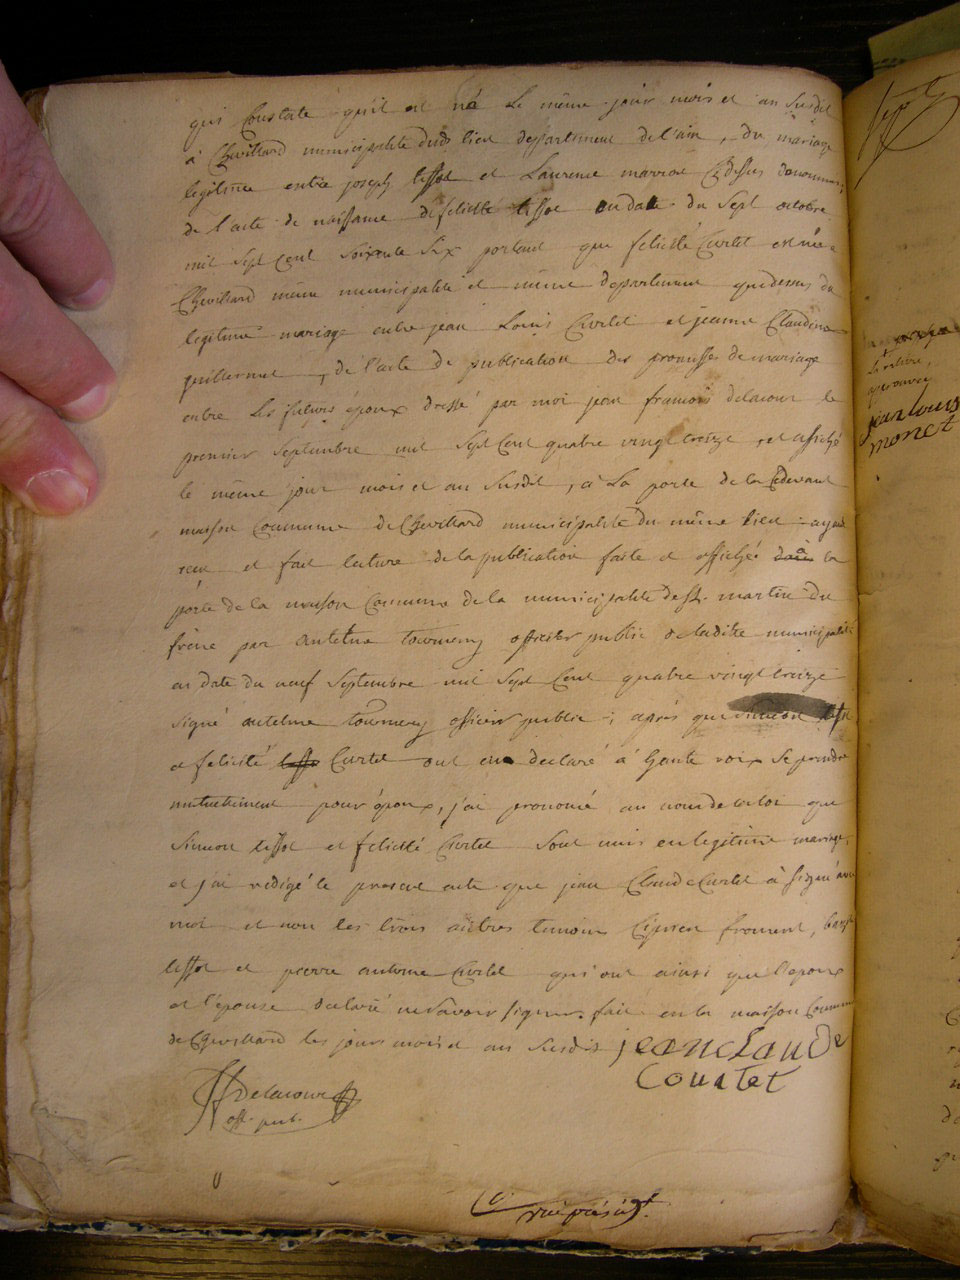 qui Constate qu'il est né Le même jour mois et an susdit
à Chevillard municipalité dudt lieu departement de l'ain, du mariage
legitime entre joseph tissot et Laurence marion Cydessus denommés;
de l'acte de naissance de felicité tissot en date du sept octobre
mil sept Cent soixante six portant que felicité Curtet est née a
Chevillard même municipalité et même departement que dessus du
legitime mariage entre jean Louis Curtet et jeanne Claudine
guillermet, de l'acte de publication des promesses de mariage
entre les futurs époux dressé par moi jean francois delacour le
premier septembre mil sept Cent quatre vingt treize, et affiché
le même jour mois et an susdit, à La porte de la Cidevant
maison Commune de Chevillard municipalité du même lieu ayant
reçu et fait lecture de la publication faite et affiché à la
porte de la maison Commune de la municipalité de st. martin du
frêne par antelme tournery officier public de ladite municipalité
en date du neuf septembre mil sept Cent quatre vingt treize
signé antelme tournery officier public; après que simeon tissot
et felicité Curtet ont eu declaré à haute voix se prendre
mutuellement pour époux, j'ai prononcé au nom de la loi que
simeon tissot et felicité Curtet sont unis en legitime mariage,
et j'ai redigé le present acte que jean Claude Curtet à signé avec
moi et non les trois autres temoins Ciprien froment,
tissot et pierre antoine Curtet qui ont ainsi que l'epoux
et l'épouse declaré ne savoir signer. fait en la maison Commune
de Chevillard les jours mois et an susdits jeanclaude
Courtet
Delacour
off. pub.
jean louis
monet